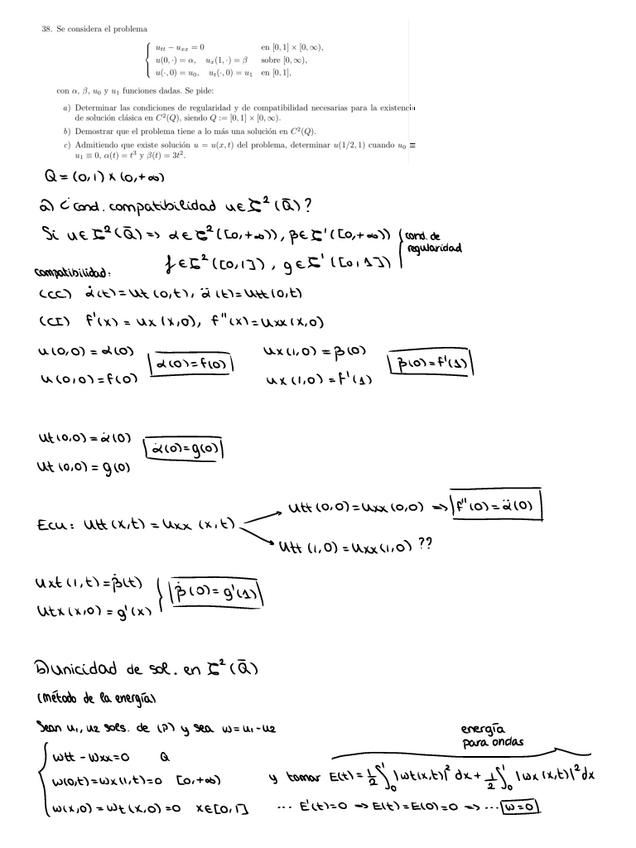 38. Se considera el problema
u_tt − u_xx = 0 en [0, 1] × [0, ∞),
u(0, ·) = α, u_x(1, ·) = β sobre [0, ∞),
u(·, 0) = u_0, u_t(·, 0) = u_1 en [0, 1],
con α, β, u_0 y u_1 funciones dadas. Se pide:
a) Determinar las condiciones de regularidad y de compatibilidad necesarias para la existencia
de solución clásica en C²(Q), siendo Q := [0, 1] × [0, ∞).
b) Demostrar que el problema tiene a lo más una solución en C²(Q).
c) Admitiendo que existe solución u = u(x, t) del problema, determinar u(1/2, 1) cuando u_0 ≡
u_1 ≡ 0, α(t) = t³ y β(t) = 3t².
Q = (0,1) x (0,+∞)
a) ¿cond. compatibilidad u ∈ C²(Q̄)?
Si u ∈ C²(Q̄) => α ∈ C²([0,+∞)), β ∈ C'([0,+∞)) cond. de
regularidad
f ∈ C²([0,1]), g ∈ C'([0,1])
compatibilidad:
(CC) α̇(t) = ut(0,t), α̈(t) = utt(0,t)
(CI) f'(x) = ux(x,0), f''(x) = uxx(x,0)
u(0,0) = α(0) α(0) = f(0) ux(1,0) = β(0) β(0) = f'(1)
u(0,0) = f(0) ux(1,0) = f'(1)
ut(0,0) = α̇(0) α̇(0) = g(0)
ut(0,0) = g(0)
utt(0,0) = uxx(0,0) => f''(0) = α̈(0)
Ecu: utt(x,t) = uxx(x,t)
utt(1,0) = uxx(1,0) ??
uxt(1,t) = β̇(t) β̇(0) = g'(1)
utx(x,0) = g'(x)
b) unicidad de sol. en C²(Q̄)
(método de la energía)
Sean u1, u2 sols. de (P) y sea w = u1 - u2
energía
para ondas
wtt - wxx = 0 Q
w(0,t) = wx(1,t) = 0 [0,+∞) y tomar E(t) = 1/2 ∫₀¹ |wt(x,t)|² dx + 1/2 ∫₀¹ |wx(x,t)|² dx
w(x,0) = wt(x,0) = 0 x ∈ [0,1] ... E'(t) = 0 => E(t) = E(0) = 0 => ... w = 0